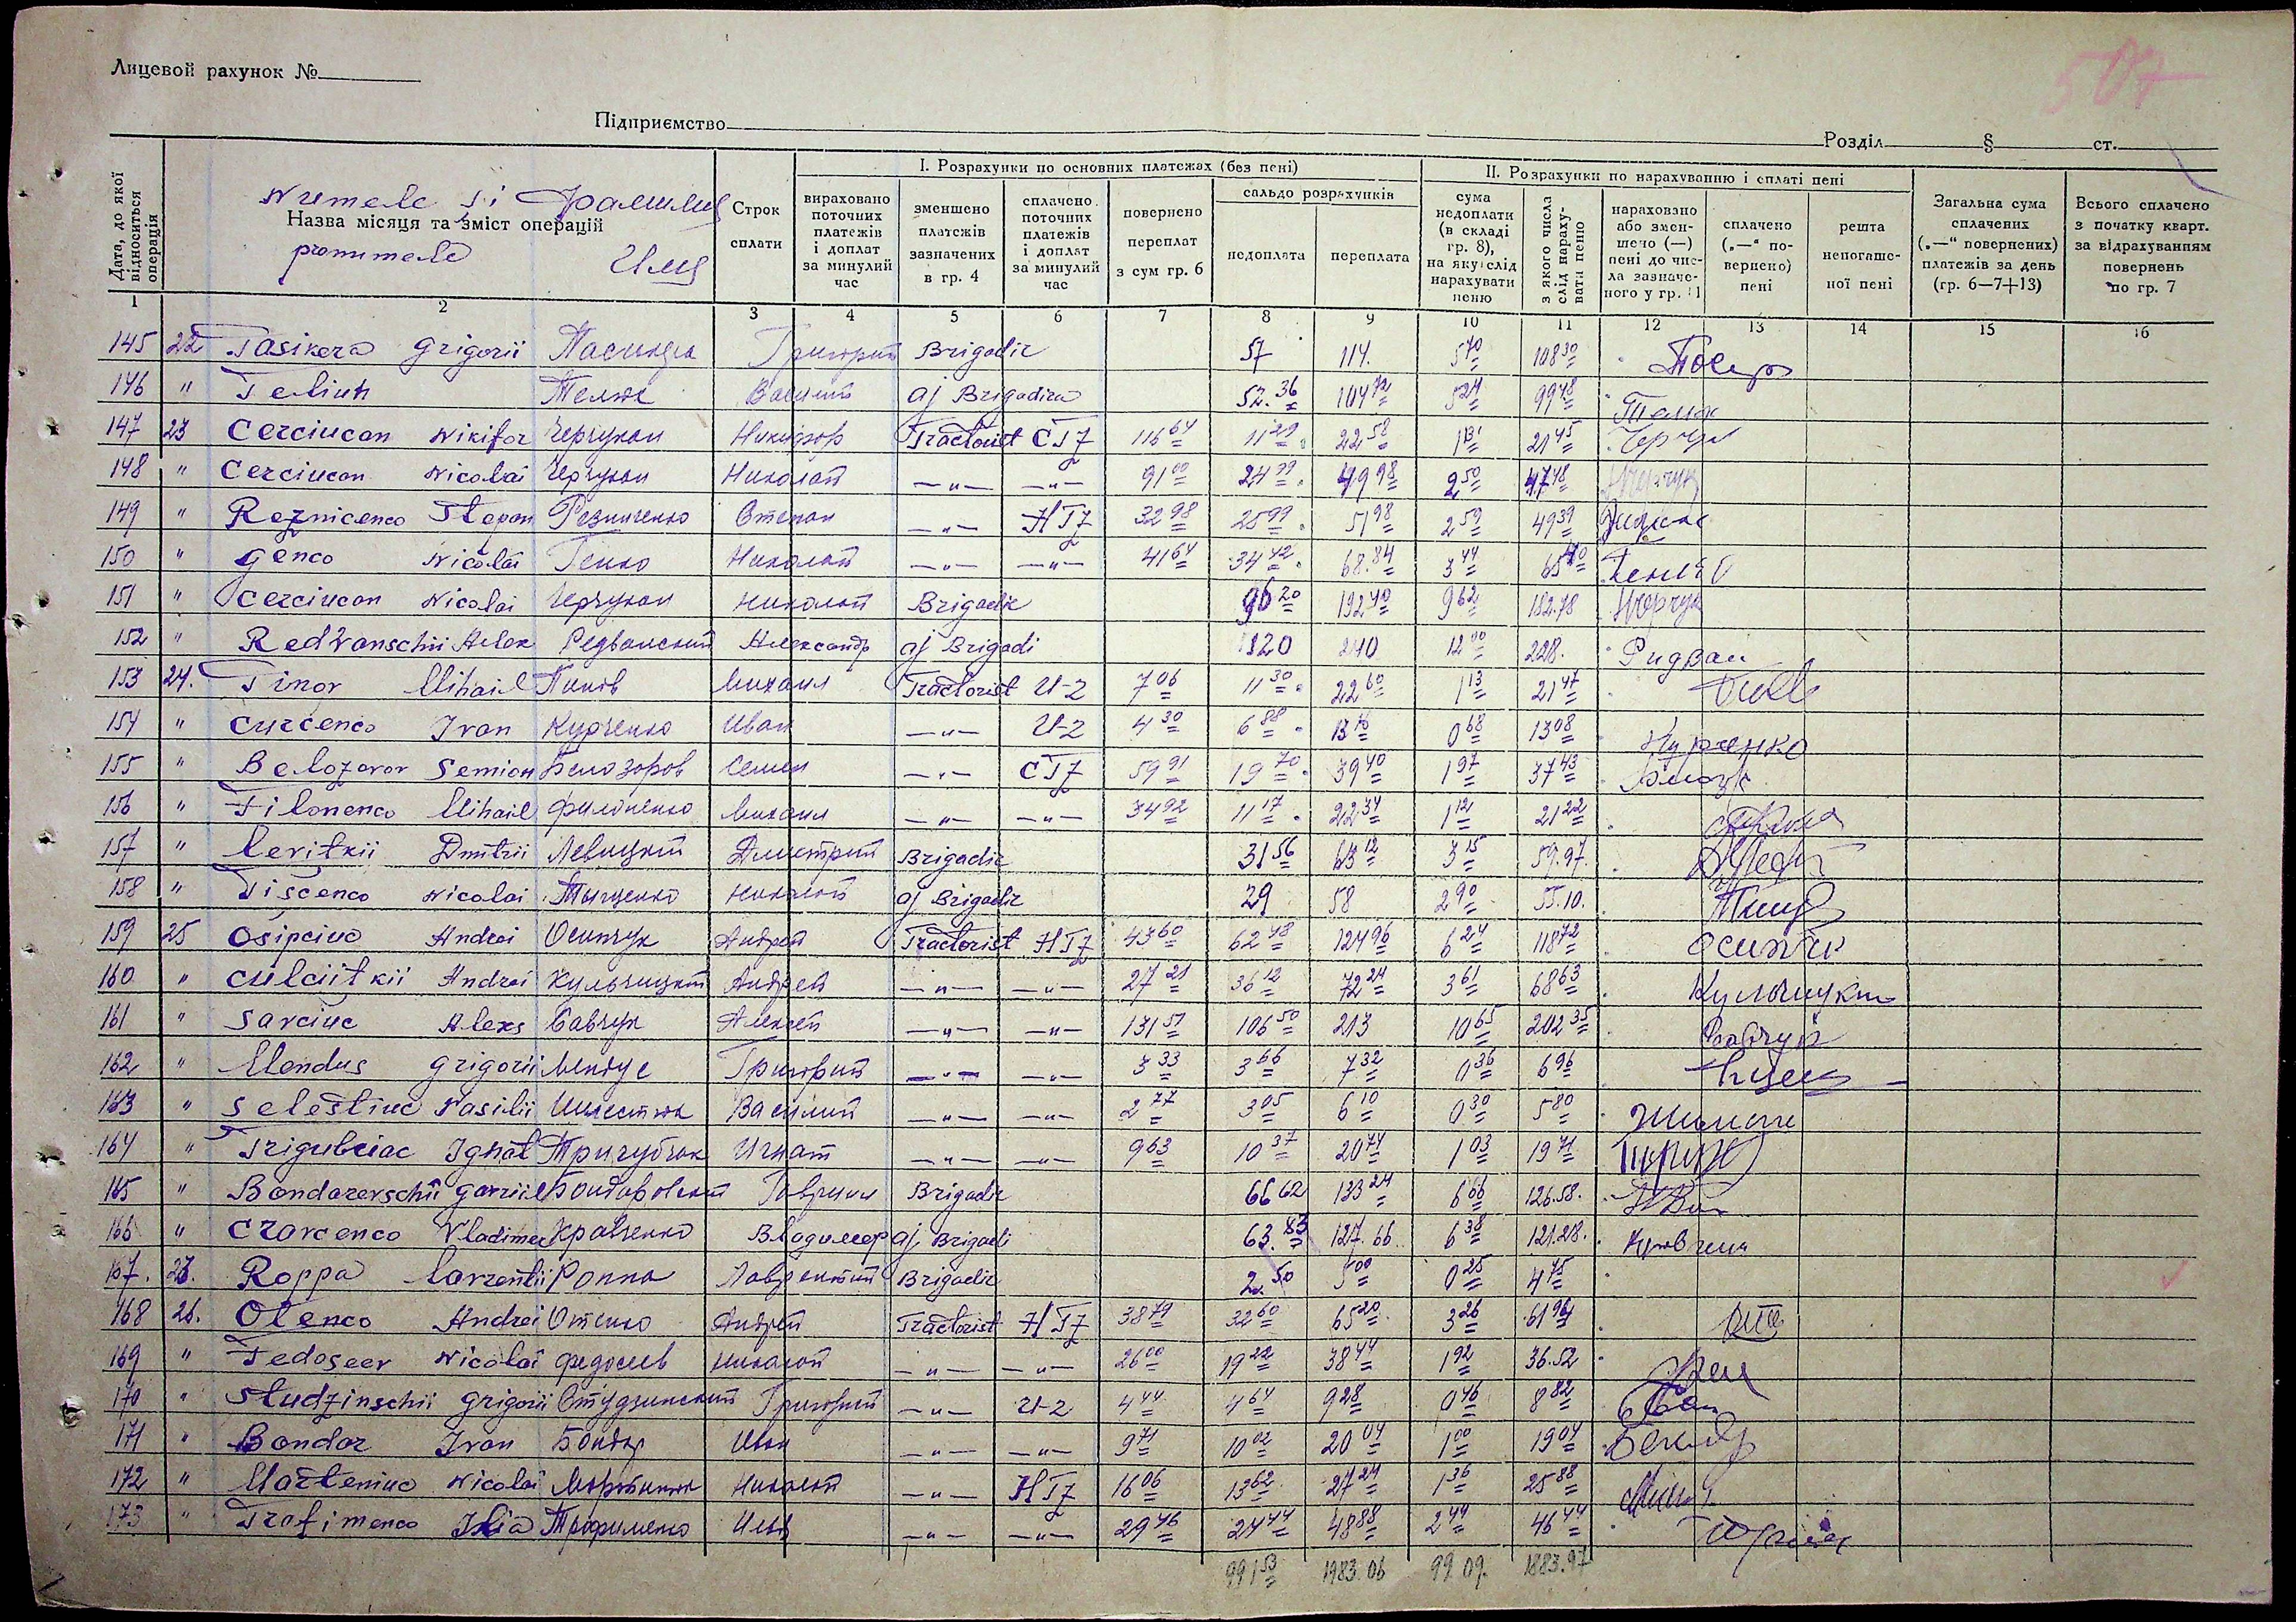 507
Лицевой рахунок №
Підприємство
Розділ § ст.
Дата, до якої відноситься операція
Numele și Фамилия
Назва місяця та зміст операцій
pronumele Имя
Строк сплати
I. Розрахунки по основних платежах (без пені)
вираховано поточних платежів і доплат за минулий час
зменшено платежів зазначених в гр. 4
сплачено поточних платежів і доплат за минулий час
повернено переплат з сум гр. 6
сальдо розрахунків
недоплата
переплата
II. Розрахунки по нарахуванню і сплаті пені
сума недоплати (в складі гр. 8), на яку слід нарахувати пеню
з якого числа слід нарахувати пеню
нараховано або зменшено (—) пені до числа зазначеного у гр. 11
сплачено („—“ повернено) пені
решта непогашеної пені
Загальна сума сплачених („—“ повернених) платежів за день (гр. 6—7+13)
Всього сплачено з початку кварт. за відрахуванням повернень по гр. 7
1 2 3 4 5 6 7 8 9 10 11 12 13 14 15 16
145 22 Pasikera Grigorii Пасикера Григорий Brigadir 57 114. 5 70 108 30
146 " Teliuk Телюк Василий aj Brigadira 52.36 104 72 5 24 99 48
147 23 Cerciucan Nikifor Черчукан Никифор Tractorist СТЗ 116 64 11 29 22 58 1 13 21 45
148 " Cerciucan Nicolai Черчукан Николай —"— —"— 91 00 24 99 49 98 2 50 47 48
149 " Reznicenco Stepan Резниченко Степан —"— НТЗ 32 98 25 99 51 98 2 59 49 39
150 " Genco Nicolai Генко Николай —"— —"— 41 64 34 42 68.84 3 44 65 40 Генко
151 " Cerciucan Nicolai Черчукан Николай Brigadir 96 20 192 40 9 62 182.78
152 " Redvanschii Alex Редванский Александр aj Brigadi 120 240 12 00 228. Ридван
153 24. Pinov Mihail Пинов Михаил Tractorist У-2 7 06 11 30 22 60 1 13 21 47
154 " Curcenco Ivan Курченко Иван —"— У-2 4 30 6 88 13 76 0 68 13 08 Курченко
155 " Belozorov Semion Белозоров Семен —"— СТЗ 59 91 19 70 39 40 1 97 37 43
156 " Filonenco Mihail Филоненко Михаил —"— —"— 34 92 11 17 22 34 1 12 21 22
157 " Levitkii Dmitrii Левицкий Дмитрий Brigadir 31 56 63 12 3 15 59.97.
158 " Tiscenco Nicolai Тыщенко Николай aj Brigadir 29 58 2 90 55.10.
159 25 Osipciuc Andrei Осипчук Андрей Tractorist НТЗ 43 60 62 48 124 96 6 24 118 72 Осипчук
160 " Culciitkii Andrei Кульчицкий Андрей —"— —"— 27 21 36 12 72 24 3 61 68 63 Кульчицкий
161 " Savciuc Alexs Савчук Алексей —"— —"— 131 51 106 50 213 10 65 202 35 Савчук
162 " Mendus Grigorii Мендус Григорий —"— —"— 3 33 3 66 7 32 0 36 6 96
163 " Selestiuc Vasilii Шилестюк Василий —"— —"— 2 77 3 05 6 10 0 30 5 80
164 " Trigubciac Ignat Тригубчак Игнат —"— —"— 9 63 10 37 20 74 1 03 19 71
165 " Bondarevschii Gavriil Бондаревский Гавриил Brigadir 66 62 133 24 6 66 126.58.
166 " Cravcenco Vladimer Кравченко Владимер aj Brigadi 63.83 127.66. 6 38 121.28.
167. 26. Roppa Lavrentii Роппа Лаврентий Brigadir 2.50 5 00 0 25 4 75
168 26. Otenco Andrei Отенко Андрей Tractorist НТЗ 38 79 32 60 65 20 3 26 61 94
169 " Fedoseev Nicolai Федосеев Николай —"— —"— 26 00 19 22 38 44 1 92 36.52
170 " Studzinschii Grigorii Студзинский Григорий —"— У-2 4 44 4 64 9 28 0 46 8 82
171 " Bondar Ivan Бондар Иван —"— —"— 9 71 10 02 20 04 1 00 19 04 Бондар
172 " Marteniuc Nicolai Мартынюк Николай —"— НТЗ 16 06 13 62 27 24 1 36 25 88
173 " Trofimenco Ilia Трофименко Илья —"— —"— 29 46 24 44 48 88 2 44 46 44
991 53 1983.06 99 09. 1883.97